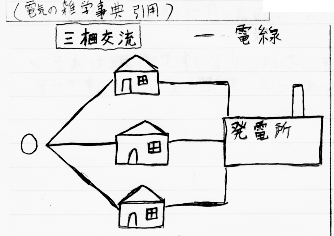 (電気の雑学事典 引用)
三相交流 — 電線
発電所